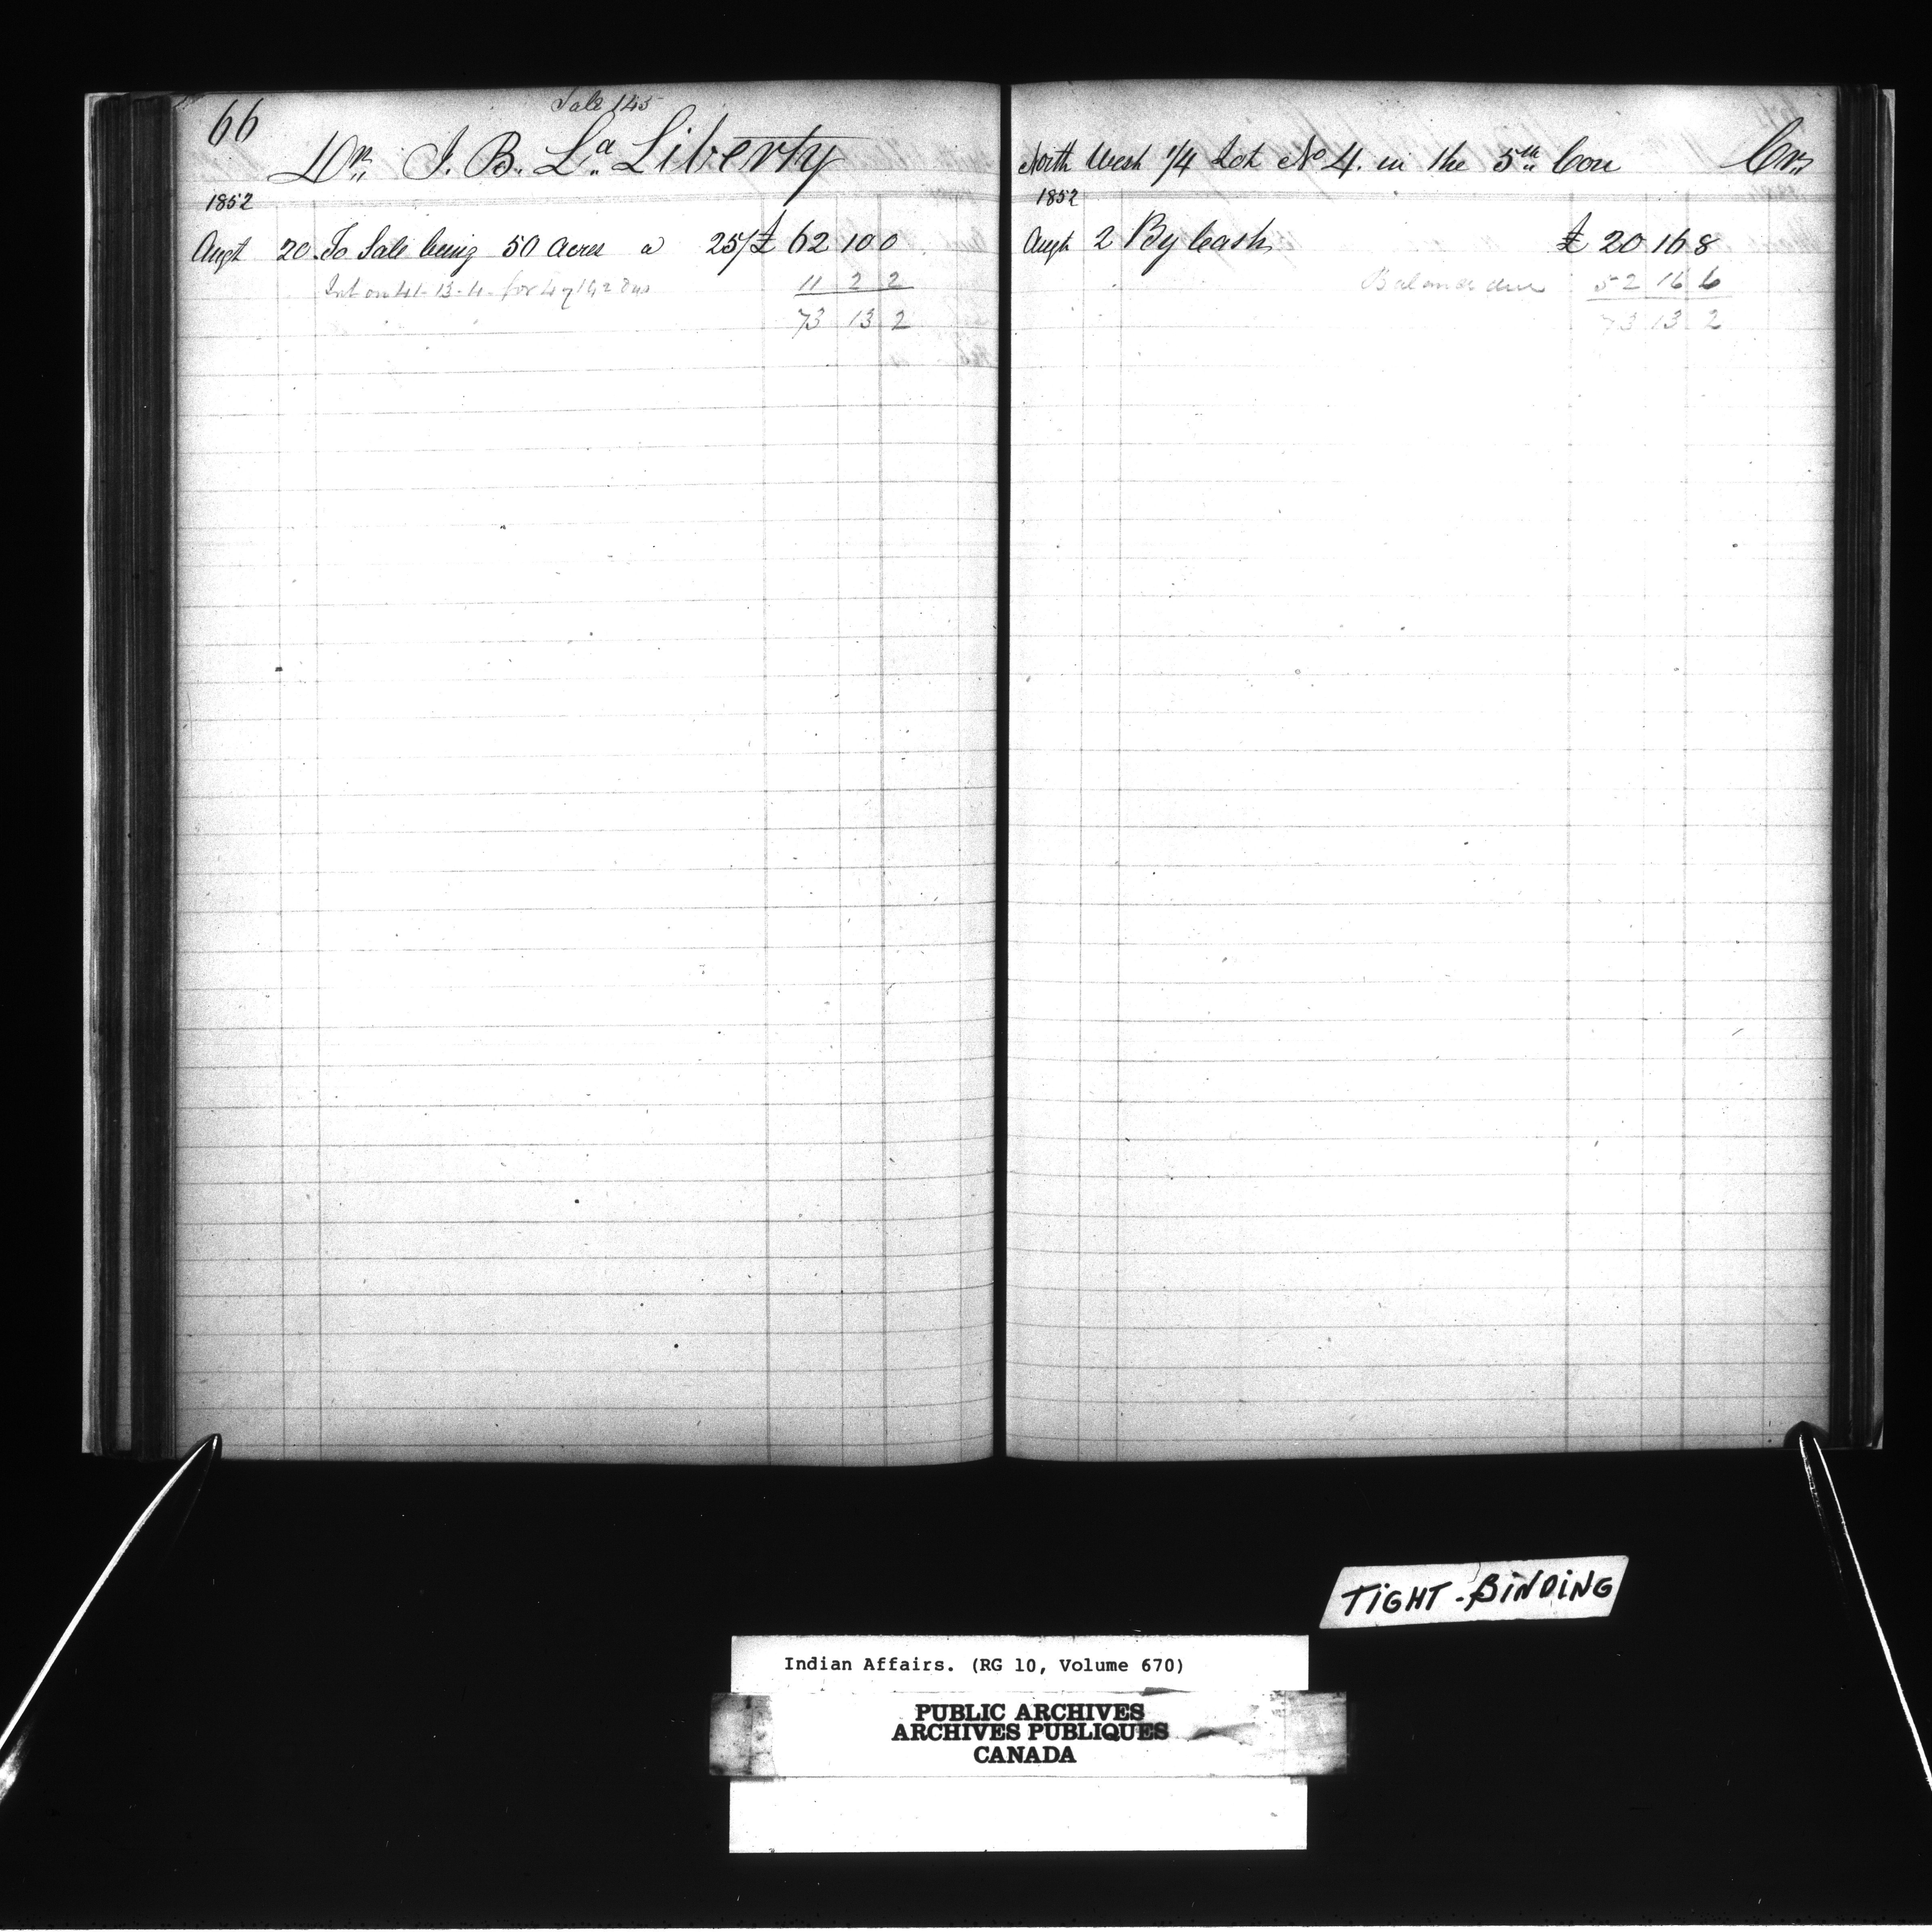 66
Sale 145
Dr. J. B. La. Liberty
1852
Augt 20 To Sale being 50 acres a 25/ £ 62 10 0
Int on 41-13-4 for 4 y 142 Dys 11 2 2
73 13 2
North West 1/4 Lot No 4. in the 5th Con Cr.
1852
Augt 2 By Cash £ 20 16 8
Balance due 52 16 6
73 13 2
TIGHT-BINDING
Indian Affairs. (RG 10, Volume 670)
PUBLIC ARCHIVES
ARCHIVES PUBLIQUES
CANADA